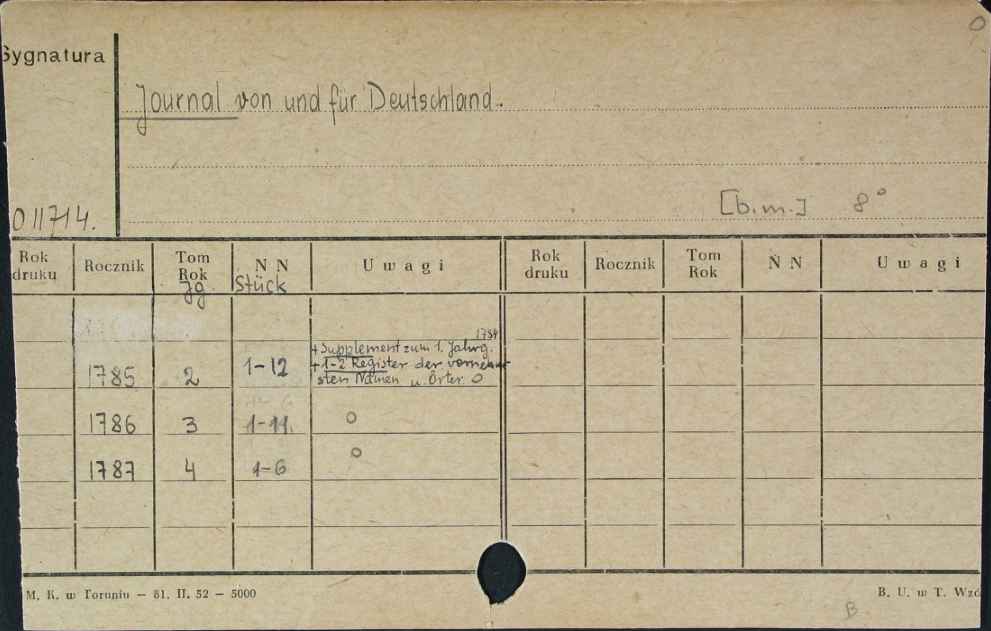 O
Sygnatura
Journal von und für Deutschland.
[b.m.] 8°
011714.
Rok druku Rocznik Tom Rok N N U w a g i Rok druku Rocznik Tom Rok N N U w a g i
Jg. Stück
1784
+ Supplement zum 1. Jahrg.
+ 1-2 Register der vorneh-
1785 2 1-12 sten Namen u. Örter. O
1786 3 1-11. O
1787 4 1-6 O
M. K. w Toruniu — 51. II. 52 — 5000
B. U. w T.
B.